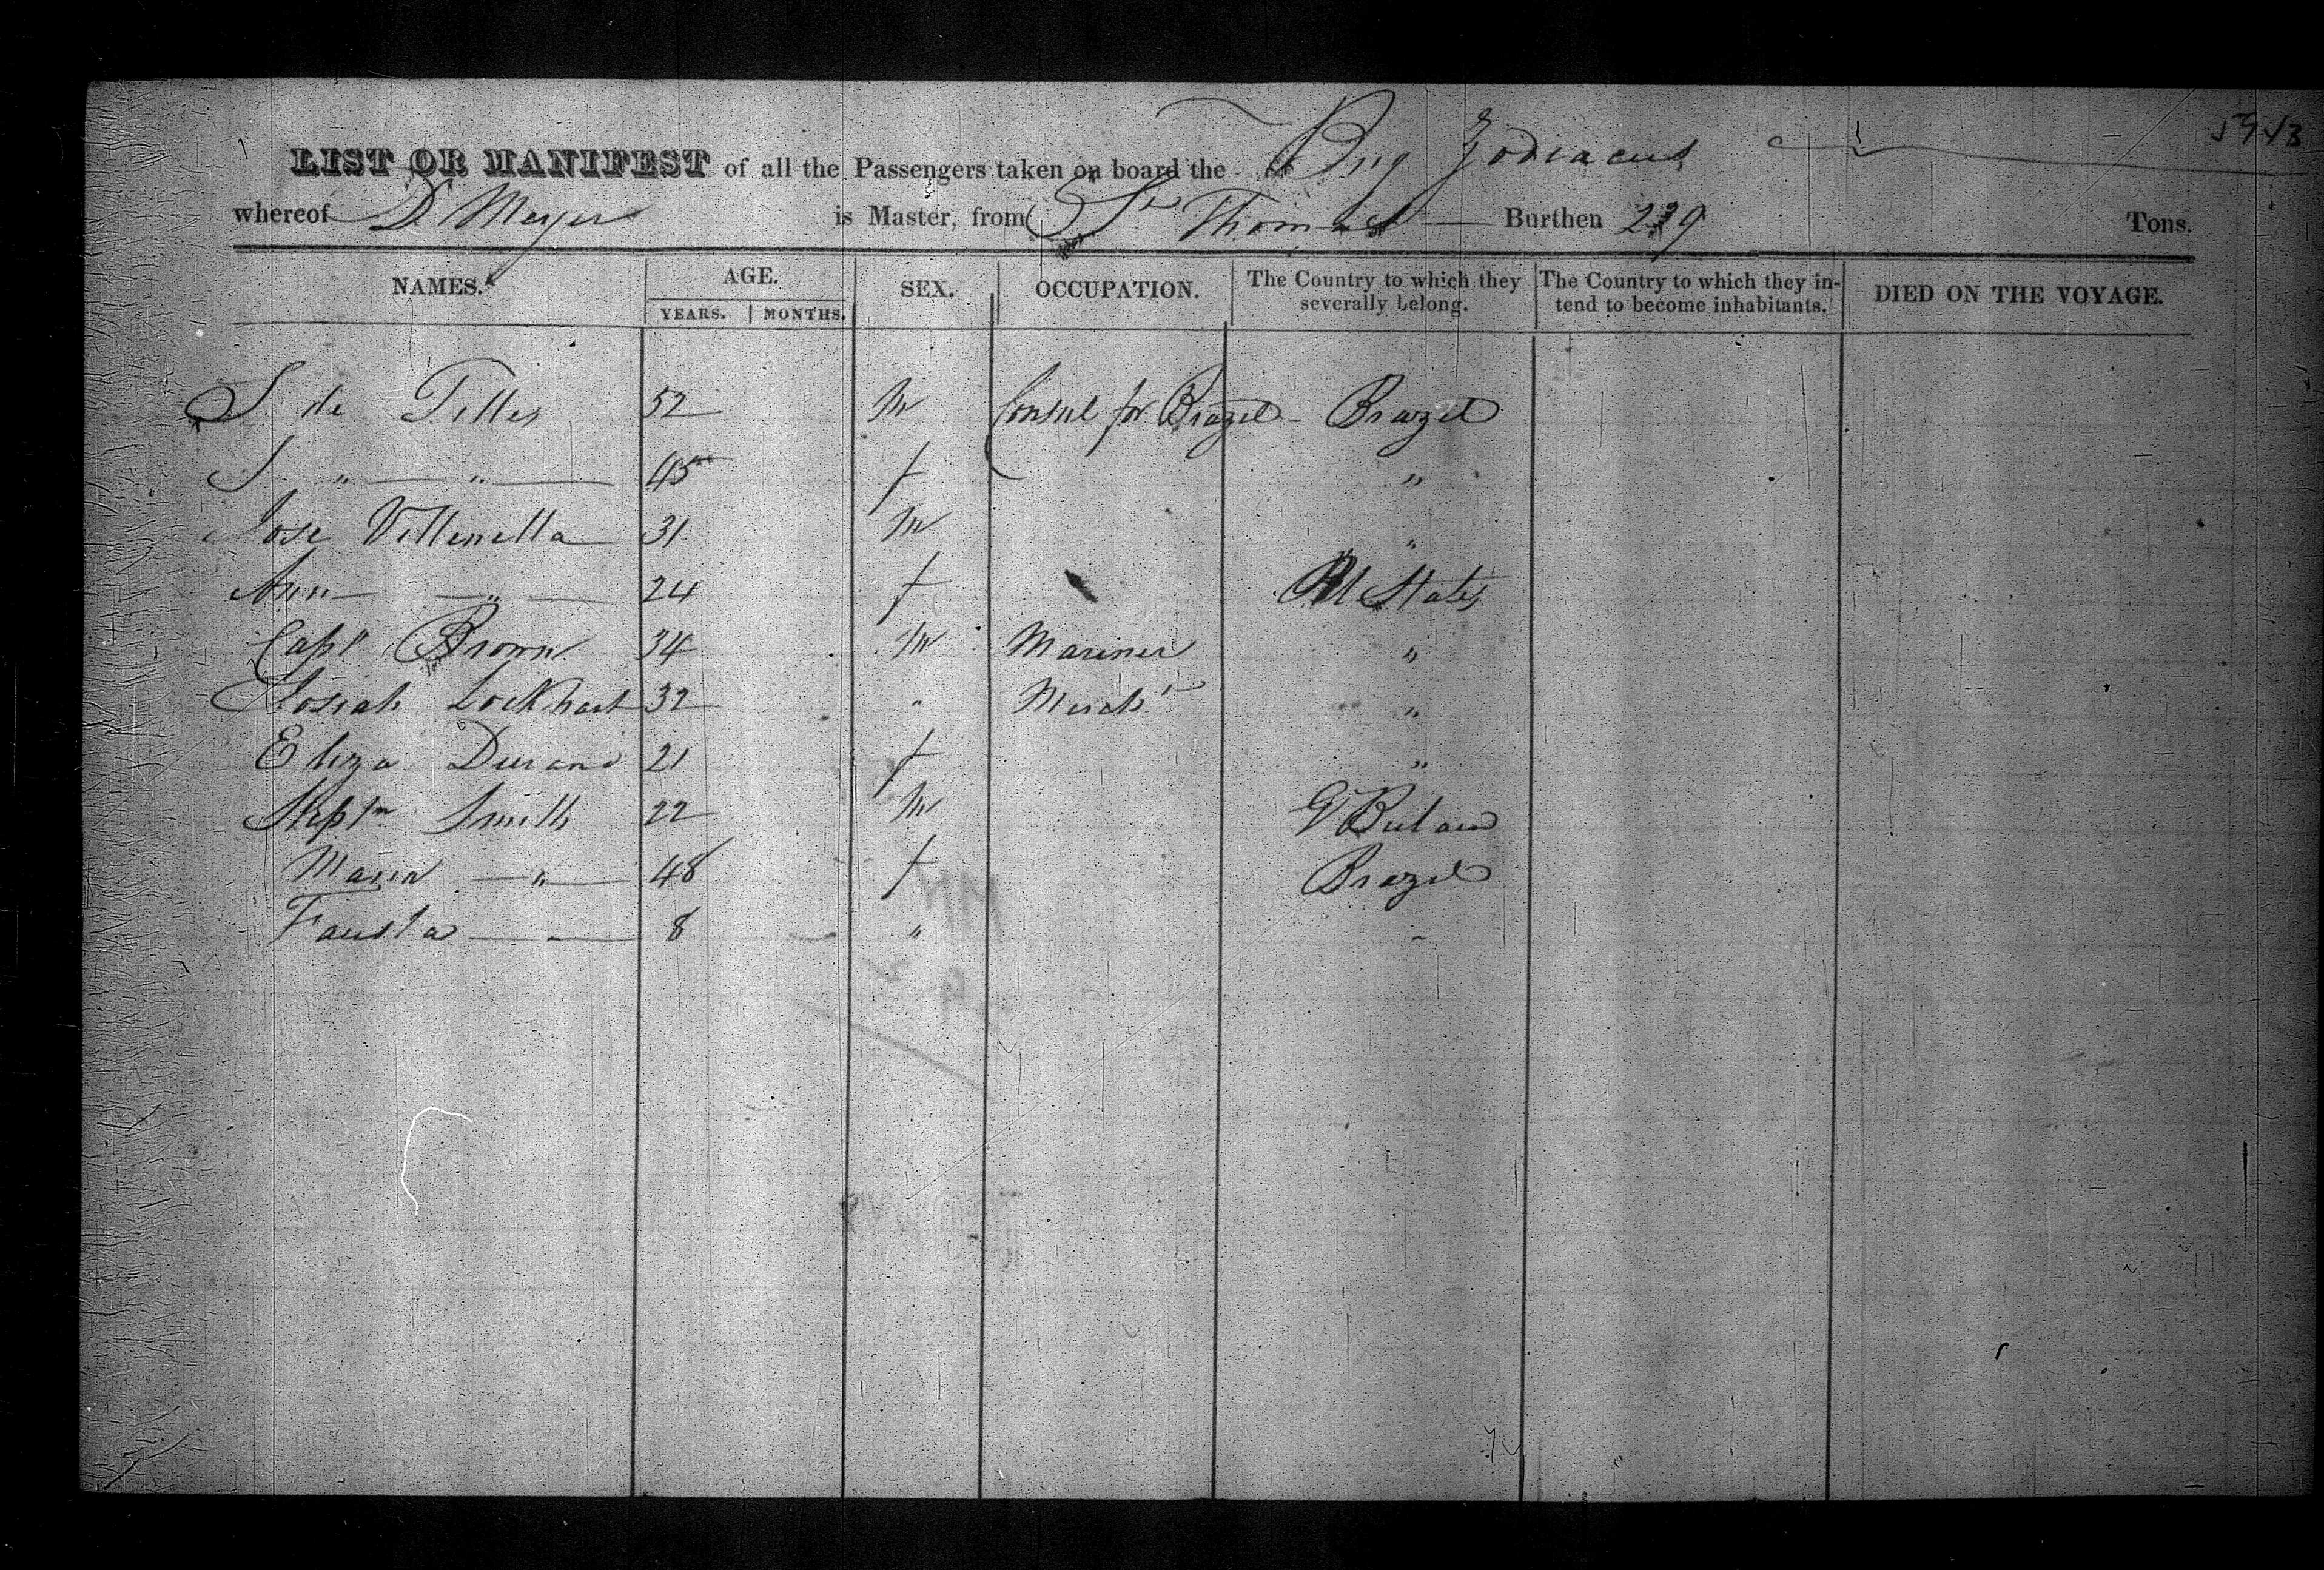 LIST OR MANIFEST of all the Passengers taken on board the Brig Zodiacus
whereof D Meyer is Master, from St Thomas — Burthen 239 Tons.
NAMES. AGE. SEX. OCCUPATION. The Country to which they severally belong. The Country to which they intend to become inhabitants. DIED ON THE VOYAGE.
YEARS. MONTHS.
S de Telles 52 M Consul for Brazil - Brazil
J " — " — 45 f "
Jose Villenella 31 M "
Ann — " — 24 f U States
Capt Brown 34 M Mariner "
Josiah Lockhart 32 " Mercht "
Eliza Durand 21 f "
Smith 22 M Gt Britain
Maria — " — 48 f Brazil
Fausta — - — 8 " -